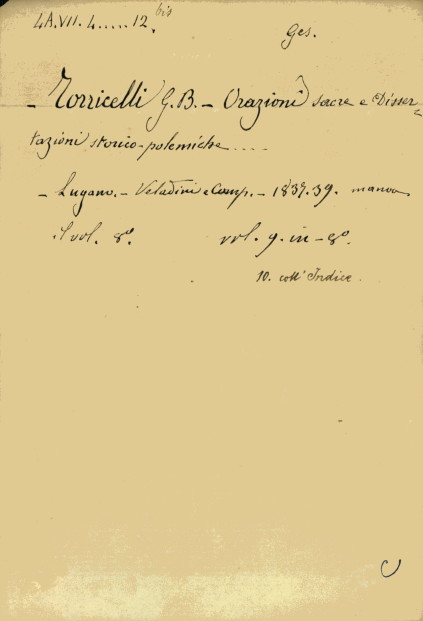 4A.VII.4.....12.bis
Ges.
- Torricelli G.B. - Orazioni sacre e Disser-
tazioni storico-polemiche....
- Lugano. - Veladini e Comp. - 1837.39. manca
il vol. 8º. vol. 9. in-8º.
10. coll' Indice.